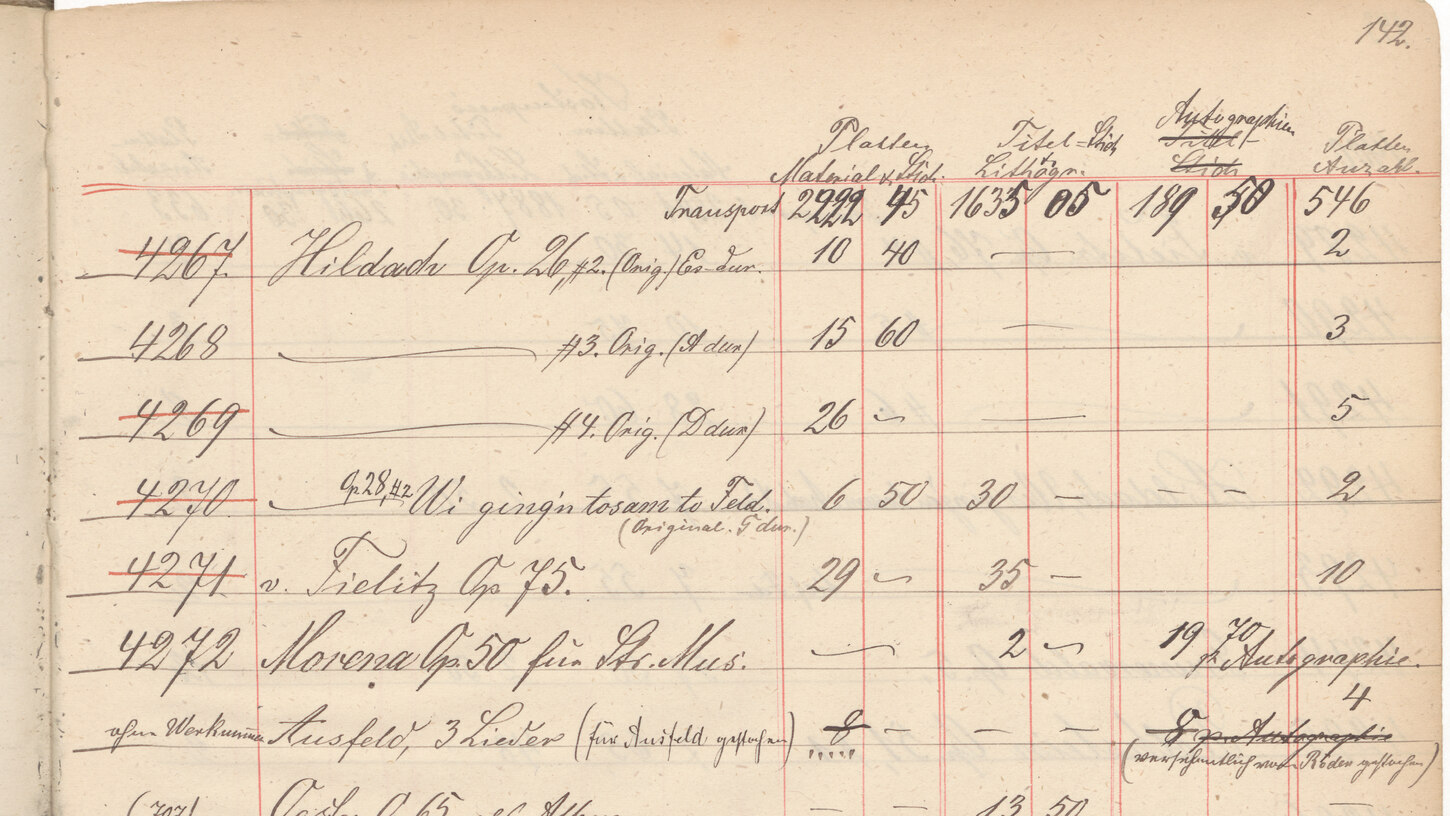 142.
Platten Titel=Stich Autographien Platten
Material u. Stich. u. Lithogr. Titel- Stich Anzahl.
Transport 2222 45 1635 05 189 50 546
4267 Hildach Op. 26, #2. (Orig.) Es-dur. 10 40 — 2
4268 — #3. Orig. (A dur) 15 60 — 3
4269 — #4. Orig. (D dur) 26 — — 5
4270 — Op 28, #2 Wi ging'n tosam to Feld. 6 50 30 — — — 2
(Original. F dur.)
4271 v. Fielitz Op 75. 29 — 35 — 10
4272 Morena Op. 50 für Str. Mus. — 2 — 19 70 Autographie.
4
ohne Werknummer Ausfeld, 3 Lieder (für Ausfeld gestochen) 8 — — — 8 Autographie
(versehentlich von Röder gestochen)
(707) 65 — — 13 50 —